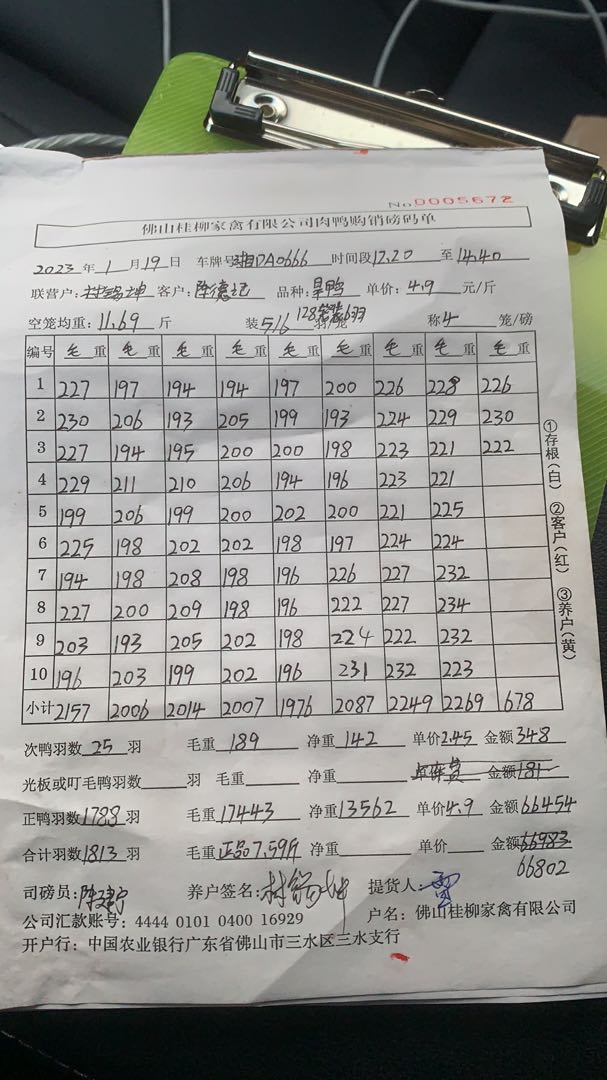 No 0005672
佛山桂柳家禽有限公司肉鸭购销磅码单
2023 年 1 月 19 日 车牌号: 湘DA0666 时间段 12.20 至 14.40
联营户: 客户: 陈德记 品种: 单价: 4.9 元/斤
空笼均重: 11.69 斤 装 5/6 羽/笼 称 4 笼/磅
编号 毛重 毛重 毛重 毛重 毛重 毛重 毛重 毛重 毛重
1 227 197 194 194 197 200 226 228 226
2 230 206 193 205 199 193 224 229 230
3 227 194 195 200 200 198 223 221 222
4 229 211 210 206 194 196 223 221
5 199 206 199 200 202 200 221 225
6 225 198 202 202 198 197 224 224
7 194 198 208 198 196 226 227 232
8 227 200 209 198 196 222 227 234
9 203 193 205 202 198 224 222 232
10 196 203 199 202 196 231 232 223
小计 2157 2006 2014 2007 1976 2087 2249 2269 678
①存根(白) ②客户(红) ③养户(黄)
次鸭羽数 25 羽 毛重 189 净重 142 单价 2.45 金额 348
光板或叮毛鸭羽数 羽 毛重 净重 金额 181
正鸭羽数 1788 羽 毛重 17443 净重 13562 单价 4.9 金额 66454
合计羽数 1813 羽 毛重 正品7.59斤 净重 单价 金额 66983
66802
司磅员: 养户签名: 提货人:
公司汇款账号: 4444 0101 0400 16929 户名: 佛山桂柳家禽有限公司
开户行: 中国农业银行广东省佛山市三水区三水支行